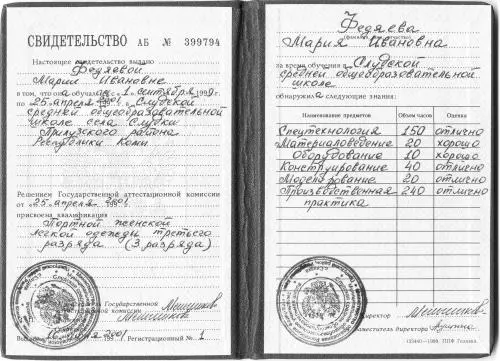 СВИДЕТЕЛЬСТВО АБ № 399794
Настоящее свидетельство выдано
Федяевой
Марии Ивановне
в том, что она обучалась с 1 сентября 199 г.
по 25 апреля 2001 в Слудской
средней общеобразовательной
школе села Слудки
Прилузского района
Республики Коми
Решением Государственной аттестационной комиссии
от 25 апреля 2001
присвоена квалификация
Портной женской
легкой одежды третьего
разряда (3 разряда)
Государственной
комиссии
2001 Регистрационный № 1
Федяева
Мария Ивановна
за время обучения в Слудской
средней общеобразовательной
школе
обнаружила следующие знания:
Наименование предметов Объем часов Оценка
Спецтехнология 150 отлично
Материаловедение 20 хорошо
Оборудование 10 хорошо
Конструирование 40 отлично
Моделирование 20 отлично
Производственная 240 отлично
практика
Директор
Заместитель директора